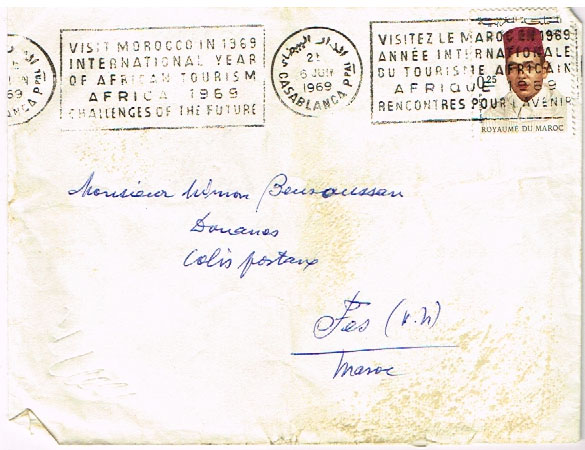 VISIT MOROCCO IN 1969
INTERNATIONAL YEAR
OF AFRICAN TOURISM
AFRICA 1969
CHALLENGES OF THE FUTURE
الدار البيضاء
21
6 JUIN
1969
CASABLANCA Ppal
VISITEZ LE MAROC EN 1969
ANNÉE INTERNATIONALE
DU TOURISME AFRICAIN
AFRIQUE 1969
RENCONTRES POUR L'AVENIR
0.25
ROYAUME DU MAROC
Monsieur Simon Bensoussan
Douanes
Colis postaux
Fes (V.N)
Maroc